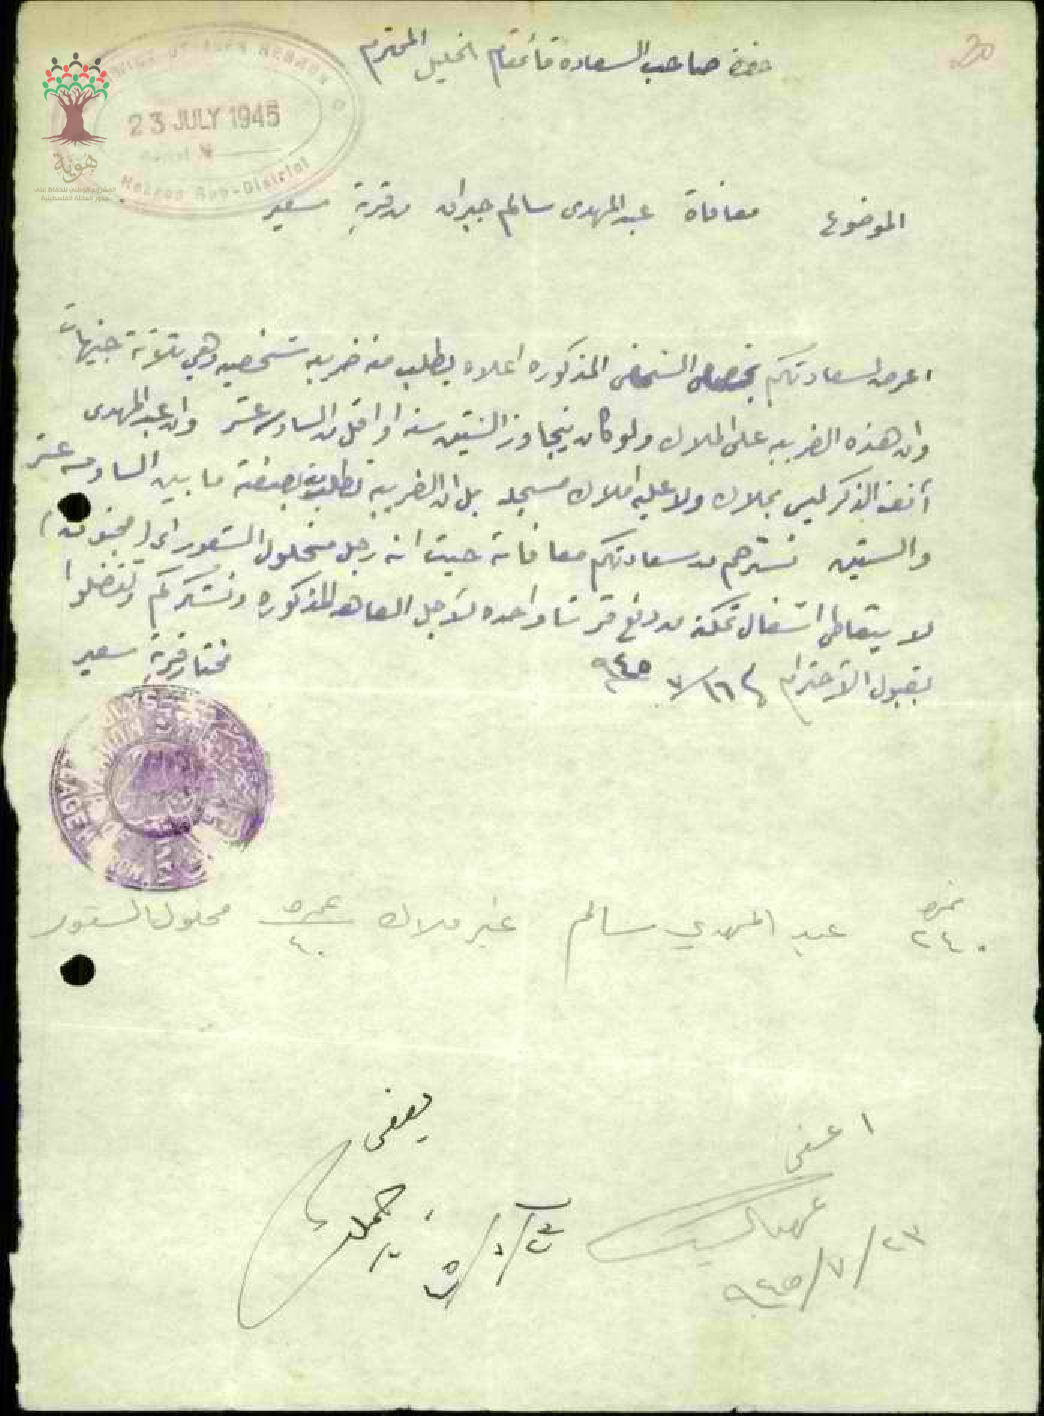 30
حضرة صاحب السعادة قائمقام الخليل المحترم
23 JULY 1945
Hebron Sub-District
هوية
الموضوع معافاة عبد المهدى سالم جبران من قرية سعير
اعرض لسعادتكم بخصوص الشخص المذكوره اعلاه يطلب منه ضريبه شخصيه وهي ثلاثة جنيهات
وان هذه الضريبه على الملاك ولو كان يتجاوز الستين سنه او اقل من السادس عشر وان عبد المهدى
آنف الذكر ليس بملاك ولا عليه املاك مسجله بل ان الضريبه تطلب بصفته ما بين السادسه عشر
والستين نسترحم من سعادتكم معافاته حيث انه رجل مختلول الشعور اى (مجنون)
لا يتعاطى اشغال تمكنه من دفع قرشا واحده لأجل العاهه المذكوره ونشكركم وتفضلوا
بقبول الأحترام ١٦/٧/٩٤٥
مختار قرية سعير
نمره ٢٤٠ عبد المهدي سالم غير ملاك عمره ٤٠ مختلول الشعور
يعفى
اعفي
٢٣/٧/٩٤٥